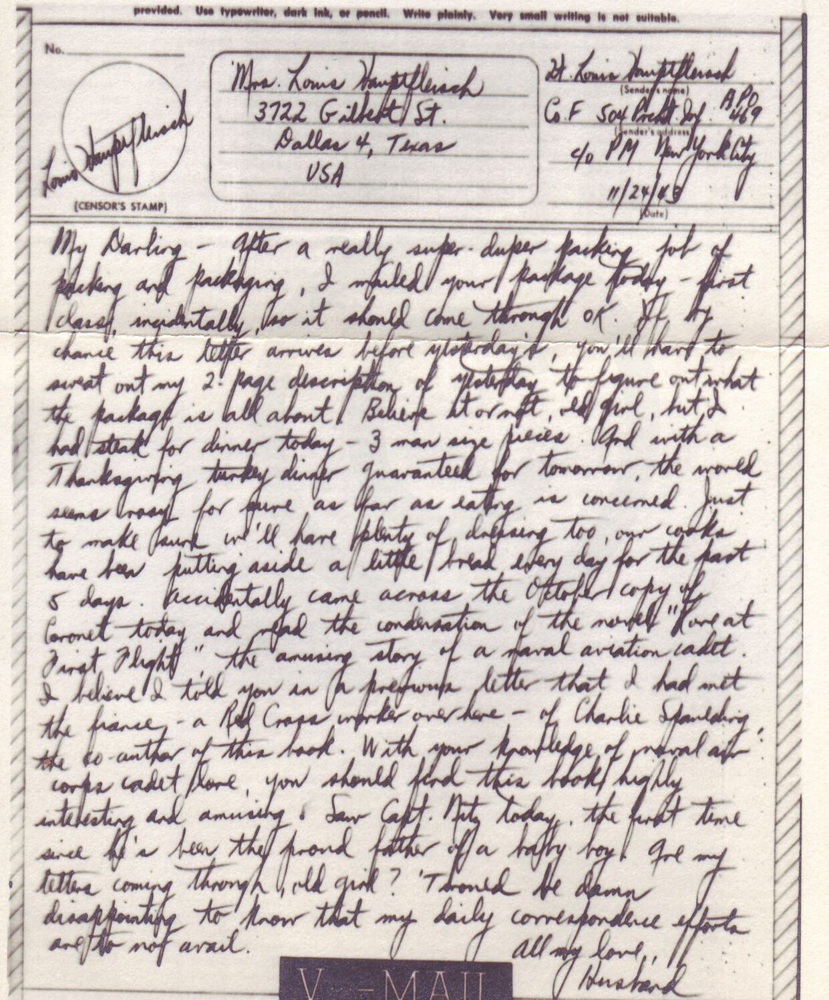 provided. Use typewriter, dark ink, or pencil. Write plainly. Very small writing is not suitable.
No.
(CENSOR'S STAMP)
Louis Hauptfleisch
Mrs. Louis Hauptfleisch
3722 Gilbert St.
Dallas 4, Texas
USA
Lt. Louis Hauptfleisch
(Sender's name)
Co. F 504 Prcht. Inf. APO 469
(Sender's address)
c/o PM New York City
11/24/43
(Date)
My Darling – After a really super-duper packing job of
packing and packaging, I mailed your package today – first
class, incidentally, so it should come through OK. If by
chance this letter arrives before yesterday's, you'll have to
sweat out my 2-page description of yesterday to figure out what
the package is all about. Believe it or not, old girl, but I
had steak for dinner today – 3 man size pieces. And with a
Thanksgiving turkey dinner guaranteed for tomorrow, the world
seems rosy for sure as far as eating is concerned. Just
to make sure we'll have plenty of dressing too, our cooks
have been putting aside a little bread every day for the past
5 days. Accidentally came across the October copy of
Coronet today and read the condensation of the novel "Love at
First Flight", the amusing story of a naval aviation cadet.
I believe I told you in a previous letter that I had met
the fiance – a Red Cross worker over here – of Charlie Spaulding,
the co-author of this book. With your knowledge of naval air
corps cadet love, you should find this book highly
interesting and amusing. Saw Capt. Nitz today, the first time
since he's been the proud father of a baby boy. Are my
letters coming through, old girl? 'Twould be damn
disappointing to know that my daily correspondence efforts
are to no avail.
All my love,
Husband
V--MAIL